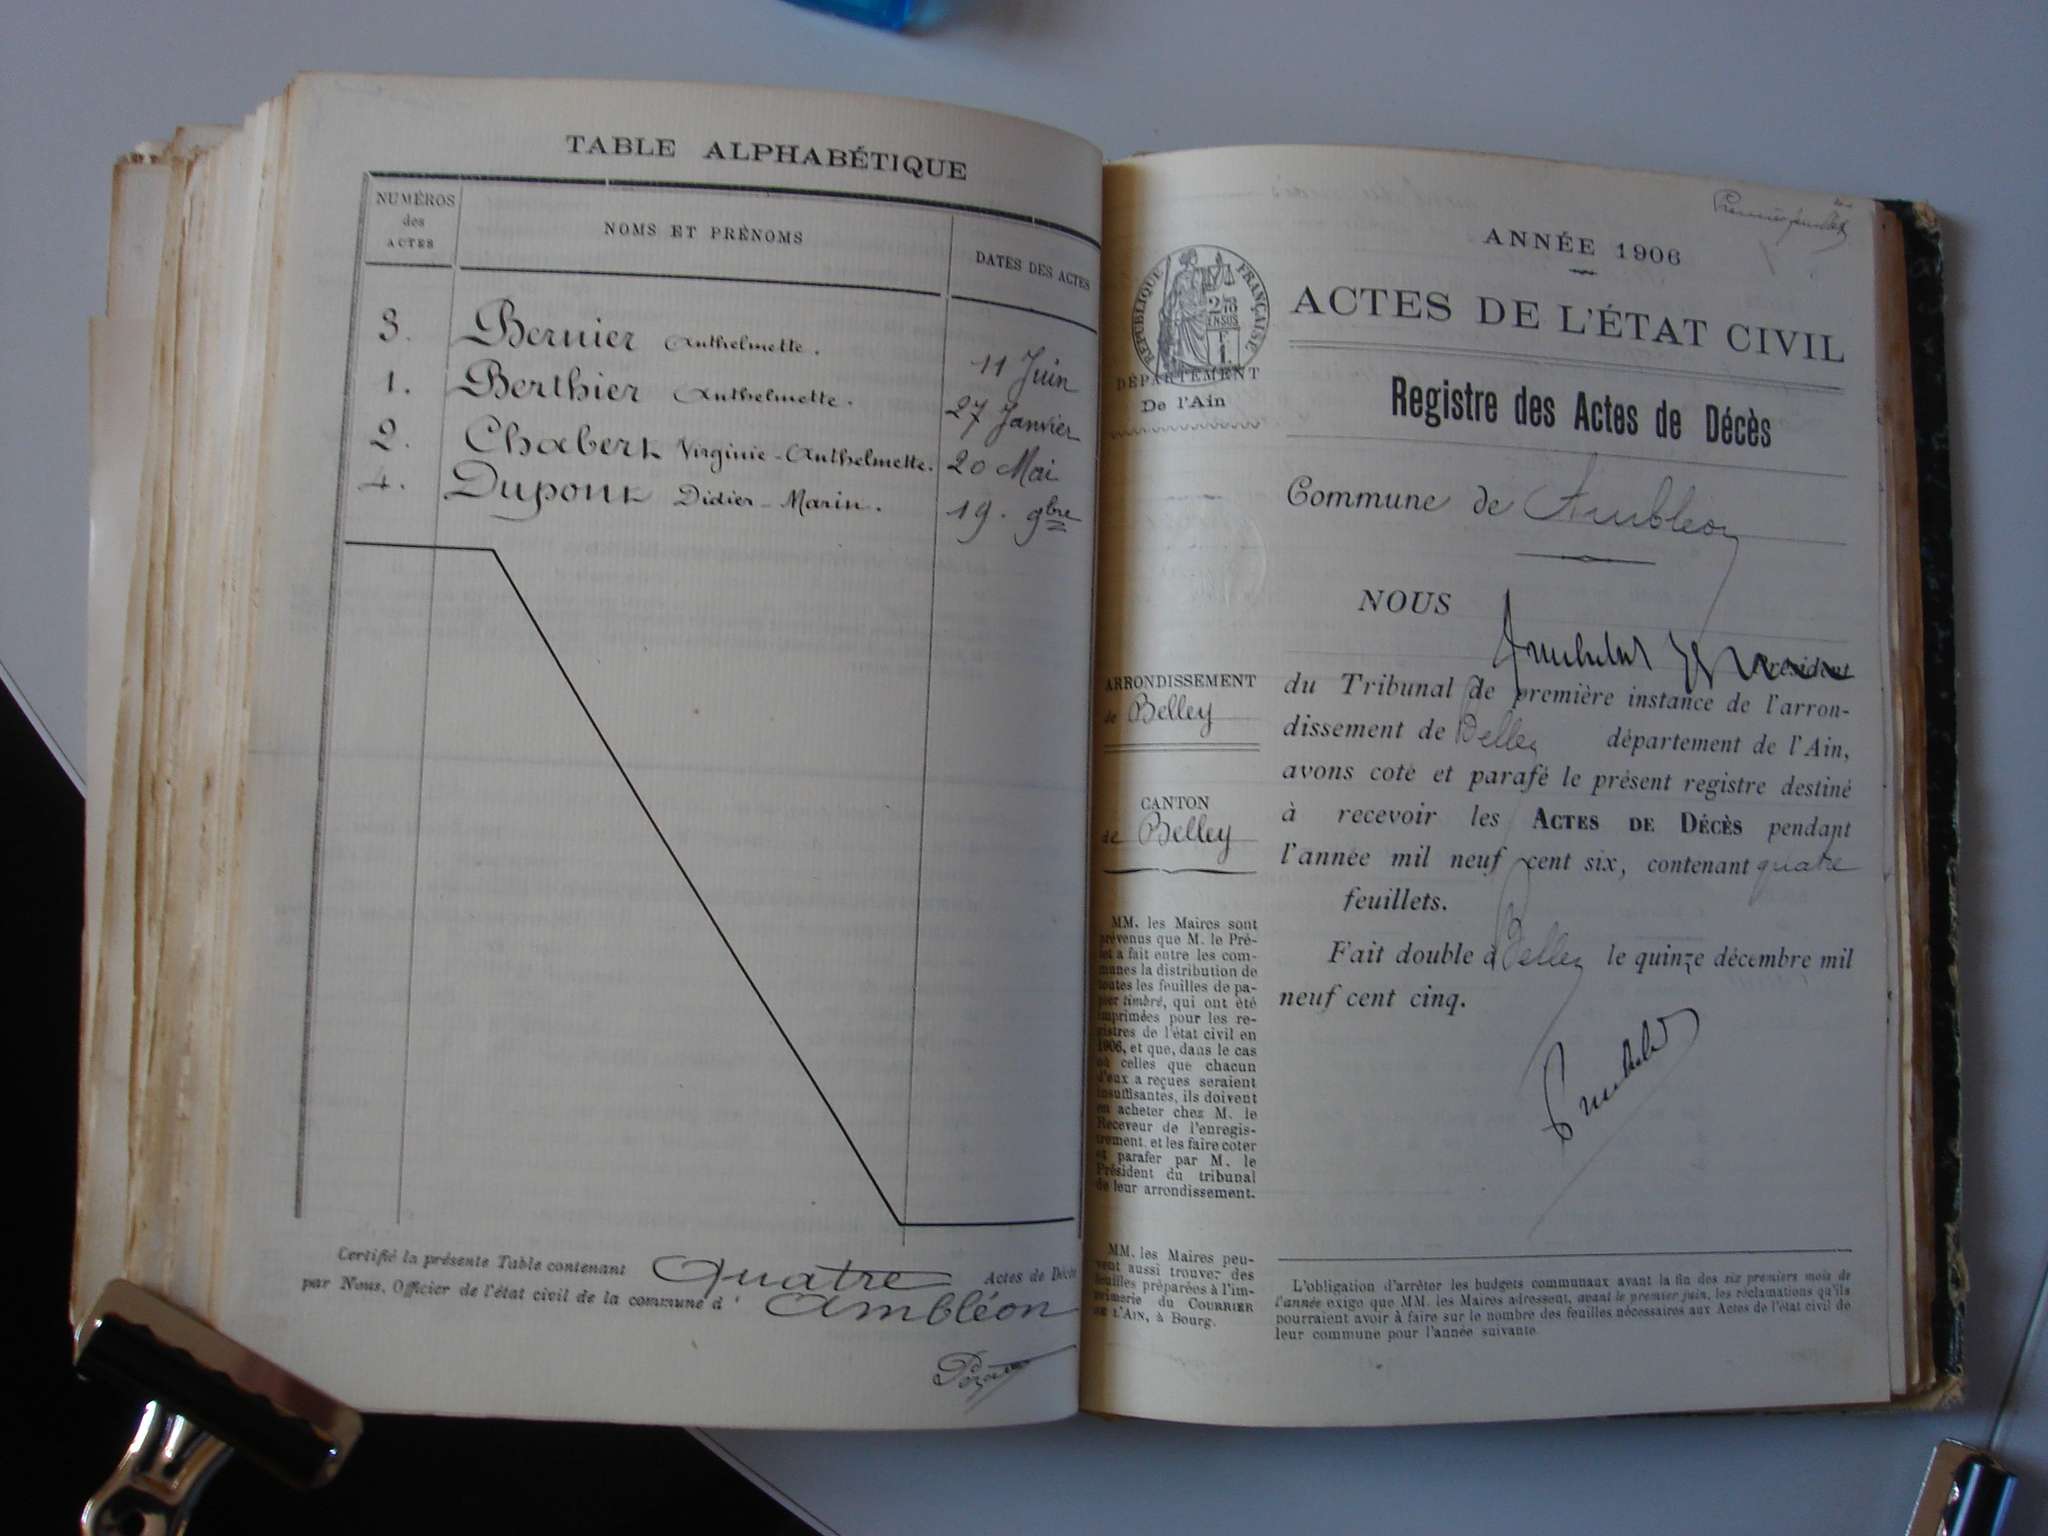 TABLE ALPHABÉTIQUE
NUMÉROS
des
ACTES
NOMS ET PRÉNOMS
DATES DES ACTES
3. Bernier Anthelmette. 11 Juin
1. Berthier Anthelmette. 27 Janvier
2. Chabert Virginie-Anthelmette. 20 Mai
4. Dupont Didier-Marin. 19. 9bre
Certifié la présente Table contenant Quatre Actes de Décès
par Nous, Officier de l'état civil de la commune d' Ambléon
ANNÉE 1906
ACTES DE L'ÉTAT CIVIL
Registre des Actes de Décès
Commune de Ambléon
NOUS
Président
du Tribunal de première instance de l'arron-
dissement de Belley département de l'Ain,
avons coté et parafé le présent registre destiné
à recevoir les ACTES DE DÉCÈS pendant
l'année mil neuf cent six, contenant quatre
feuillets.
Fait double à Belley le quinze décembre mil
neuf cent cinq.
L'obligation d'arrêter les budgets communaux avant la fin des six premiers mois de
l'année exige que MM. les Maires adressent, avant le premier juin, les réclamations qu'ils
pourraient avoir à faire sur le nombre des feuilles nécessaires aux Actes de l'état civil de
leur commune pour l'année suivante.
RÉPUBLIQUE FRANÇAISE
DÉPARTEMENT
De l'Ain
ARRONDISSEMENT
de Belley
CANTON
de Belley
MM. les Maires sont
prévenus que M. le Pré-
fet a fait entre les com-
munes la distribution de
toutes les feuilles de pa-
pier timbré, qui ont été
imprimées pour les re-
gistres de l'état civil en
1906, et que, dans le cas
où celles que chacun
d'eux a reçues seraient
insuffisantes, ils doivent
en acheter chez M. le
Receveur de l'enregis-
trement, et les faire coter
et parafer par M. le
Président du tribunal
de leur arrondissement.
MM. les Maires peu-
vent aussi trouver des
feuilles préparées à l'im-
primerie du COURRIER
DE L'AIN, à Bourg.